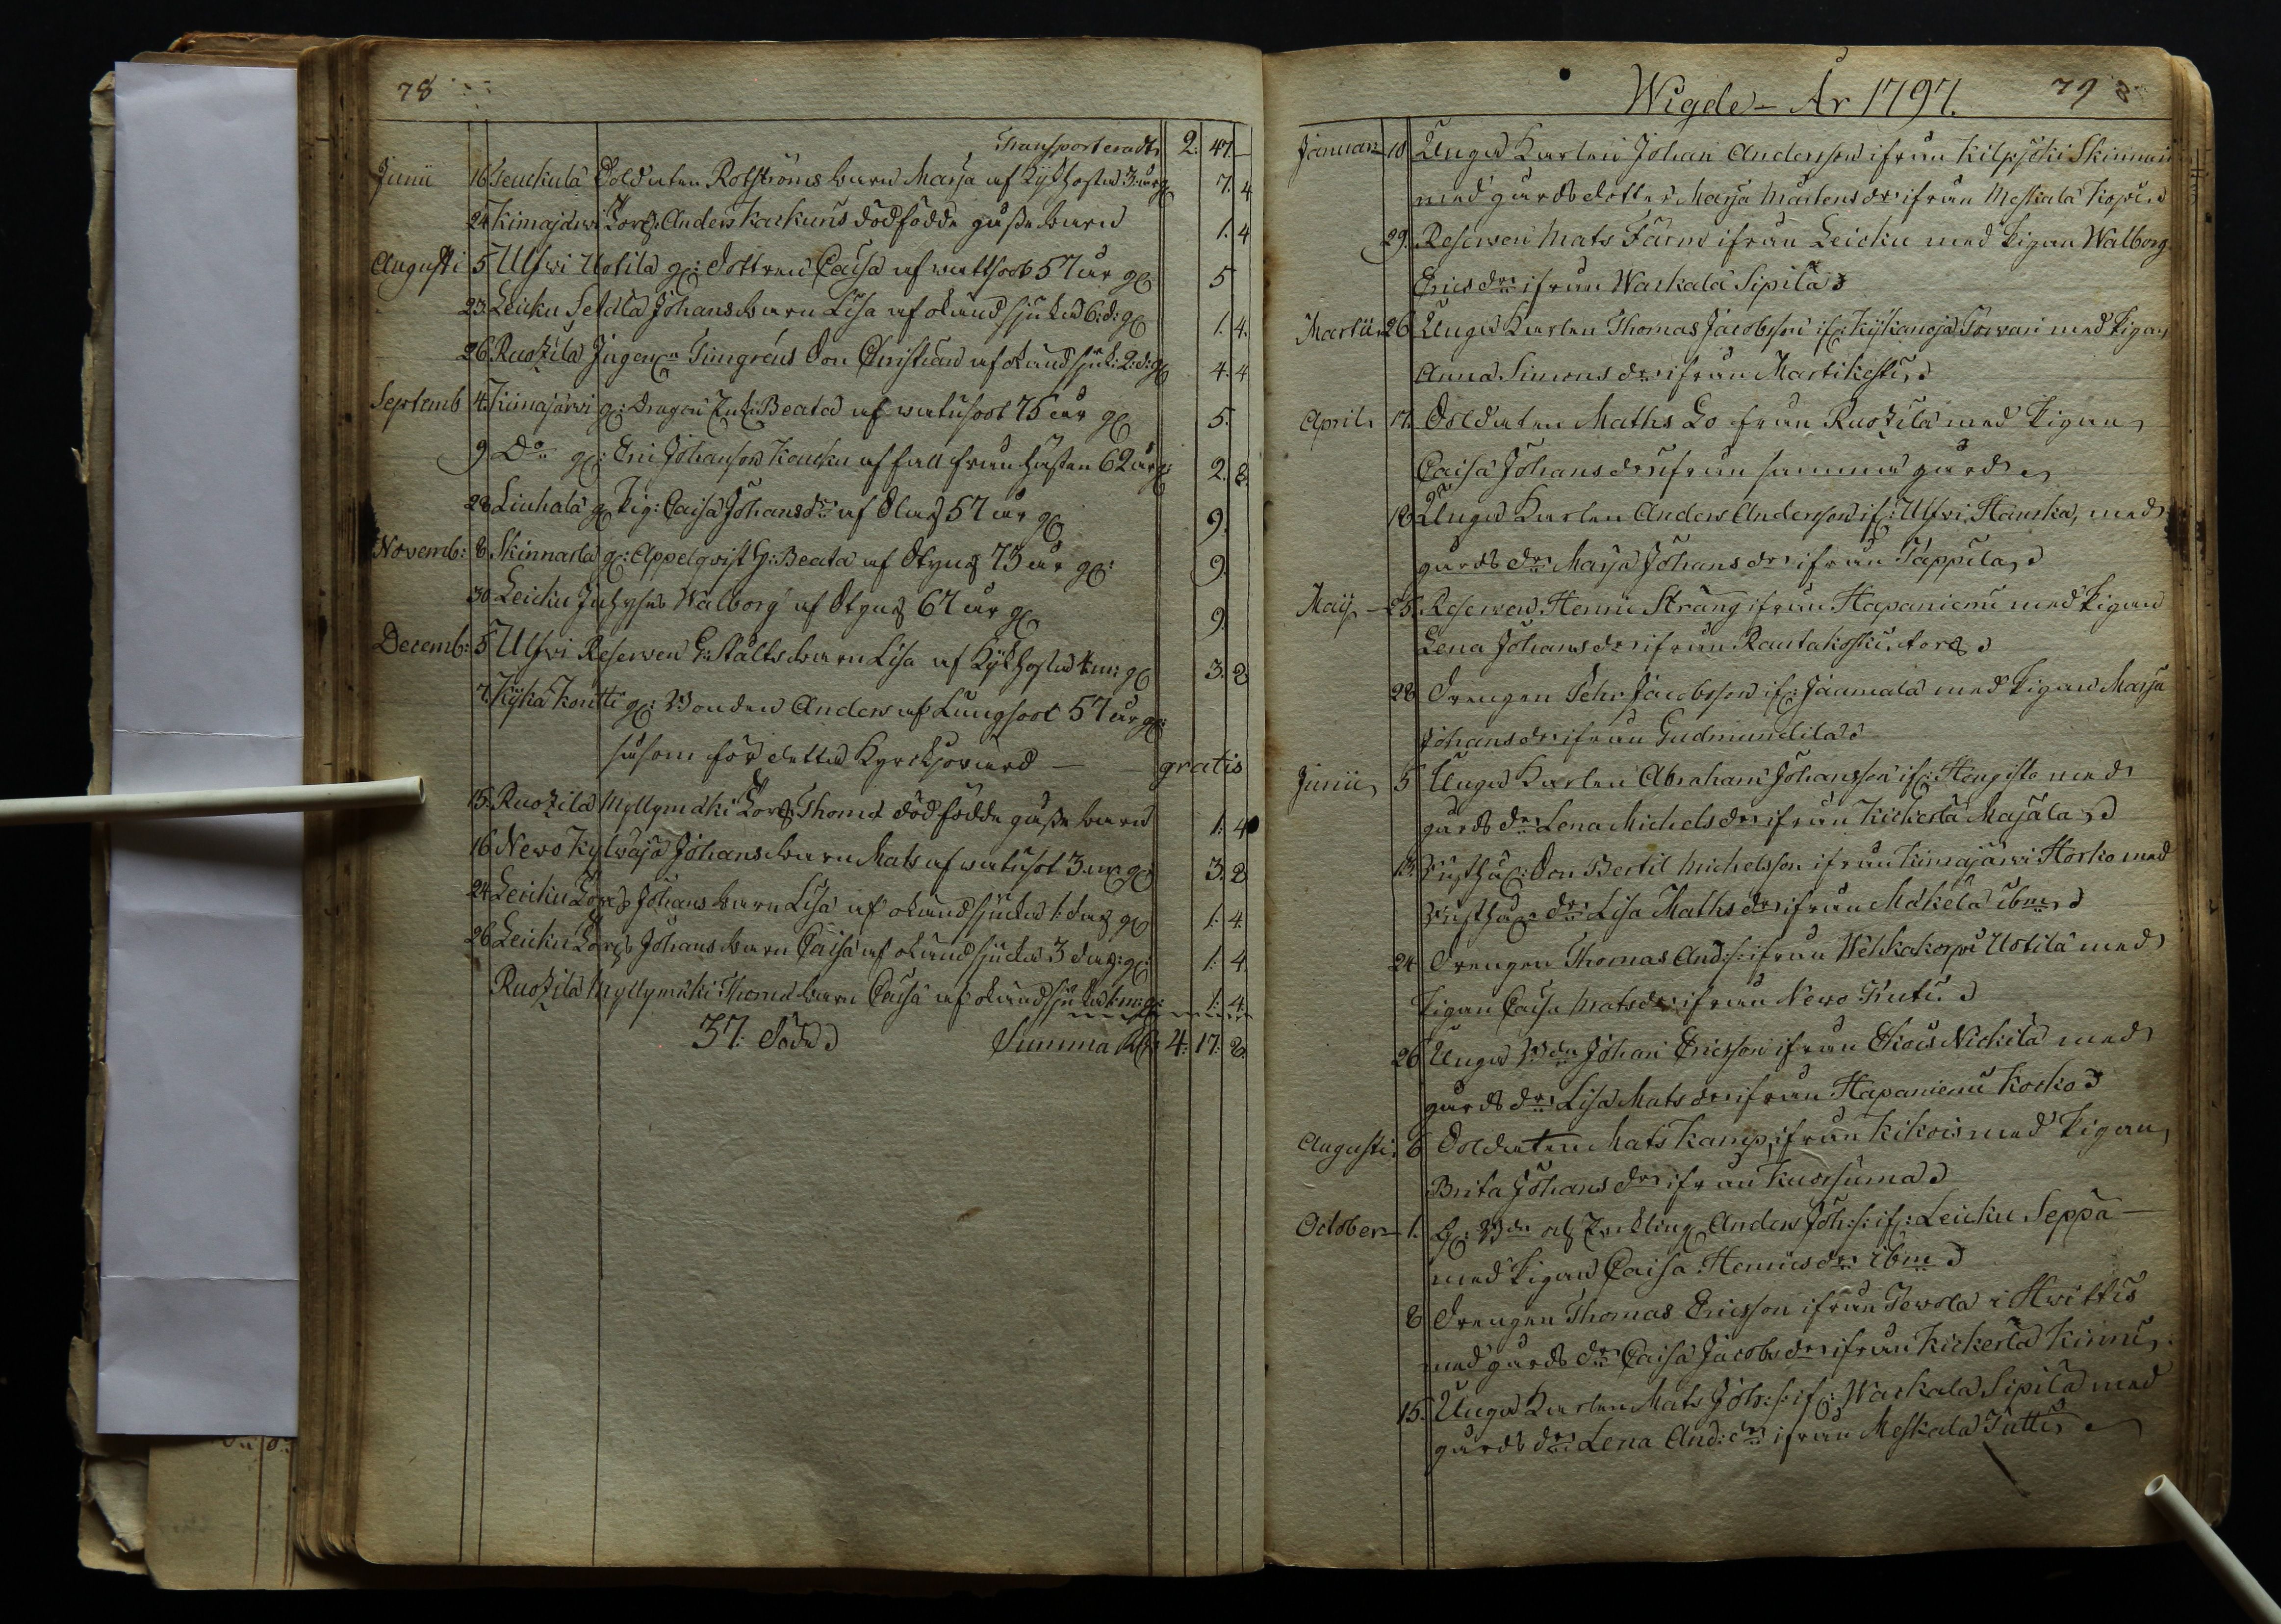 78
Transporteradt 2. 47. —
Junii 16 Seuckula Soldaten Rotströms barn Marja af Kikhosta 3: år g: 7. 4
24 Kimajärwi Torp: Anders Kackuris dödfödde gåsse barn 1. 4
Augusti 5 Ulfwi Uotila g: dottren Caisa af wattsoot 57 år g: 5
23 Leicku Seläla Johans barn Lisa af okänd siukd: 6: d: g: 1. 4.
26 Ruotzila Jägaren Timgréns Son Christian af okänd siuk: 2: d: g: 4. 4
Septemb 4. Kimajärwi g: Dragou Enk: Beata af watusoot 75 år g: 5.
9 Do g: Eric Johansson Kaucku af fall från hästen 62 år g: 2. 8.
28 Liuhala g: Pig: Caisa Johansdr af Slag 57 år g: 9.
Novemb: 8 Skinnarla g: Appelqvist H: Beata af Styng 73 år g: 9.
30 Leicku Walborg af Styng 67 år g: 9.
Decemb: 5 Ulfwi Reserven G: Stålts barn Lisa af Kikhosta 4 m: g: 3. 8
7. Kijkä Kontti g: Bonden Anders af Lungsoot 57 år g:
såsom för detta Kyrckiowärd — gratis
15. Ruotzila Myllymäki Torp: Thomas dödfödde gåsse barn 1: 4
16 Newo Kylwäjä Johans barn Mats af watusot 3 m: g: 3. 8
24 Leicku Torp: Johans barn Lisa af okänd siucka 1: dag g: 1: 4.
26 Leicku Torp: Johans barn Caisa af okänd siucka 3 dag: g: 1: 4.
Ruotzila Myllymäki Thomas barn Caisa af okänd siuka 1: m: g: 1: 4.
37: Döde Summa Rd 4: 17: 8.
Wigde – År 1797. 79
Januari 18 Unga Karlen Johan Andersson ifrån Kilpijoki Skinnari
med gårds dotter Marja Mårtens dr ifrån Meskala Kopu
29. Reserven Mats Färm ifrån Leicku med Pigan Walborg
Erics dr ifrån Warkala Sipilä
Martii 26 Unga Karlen Thomas Jacobsson if: Kijkänoja Torwari med Pigan
Anna Simons dr ifrån Martikesti
April 17. Soldaten Maths Lo från Ruotzila med Pigan
Caisa Johans dr ifrån samma gård
18 Unga Karlen Anders Andersson if: Ulfwi Hanska, med
gårds dr Marja Johans dr ifrån Tappila
Maij – 25. Reserven Henric Sträng ifrån Hapaniemi med Pigan
Lena Johans dr ifrån Rautakoski torp
28 Drengen Pehr Jacobsson if: Jaamala med Pigan Marja
Johans dr ifrån Gudmundila
Junii 5 Unga Karlen Abraham Johansson if: Hongisto med
gårds dr Lena Michels dr ifrån Kickerlä Majala
18. Rusth: Son Bertil Michelsson ifrån Kimajärwi Horko med
Rusth: dr Lisa Maths dr ifrån Mäkelä ibm
24 Drengen Thomas And: s: ifrån Wehkakorpi Uotila med
Pigan Caisa Mats dr ifrån Newo Kuti
26 Unga Bdn Johan Ericsson ifrån Ekois Nickilä med
gårds dr Lisa Mats dr ifrån Hapaniemi Kocko
Augusti 6 Soldaten Mats Kamp, ifrån Kikois med Pigan
Brita Johans dr ifrån Kuorsuma
October 1. g: Bdn och Enkling Anders Joh: s: if: Leicku Seppä –
med Pigan Caisa Henrics dr ibm
8 Drengen Thomas Ericsson ifrån Tewola i Hwittis
med gårds dr Caisa Jacobs dr ifrån Kickerlä Kinni
15. Unga Karlen Mats Joh: s: if: Warkala Sipilä med
gårds dr Lena And: dr ifrån Meskala Tutti